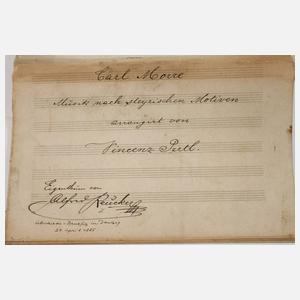 Carl Morre
Musik nach steyrischen Motiven
arrangirt von
Vincenz Pertl.
Eigenthum von
Alfred Reucker
in Danzig